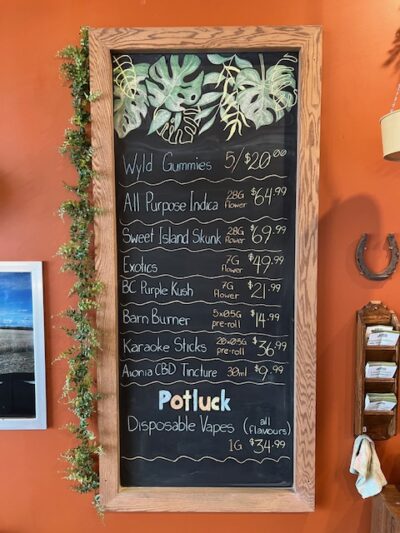 Wyld Gummies 5/$20.00
All Purpose Indica 28G flower $64.99
Sweet Island Skunk 28G flower $69.99
Exotics 7G flower $49.99
BC Purple Kush 7G flower $21.99
Barn Burner 5x0.5G pre-roll $14.99
Karaoke Sticks 20x0.5G pre-roll $36.99
Axonia CBD Tincture 30ml $9.99
Potluck
Disposable Vapes (all flavours)
1G $34.99